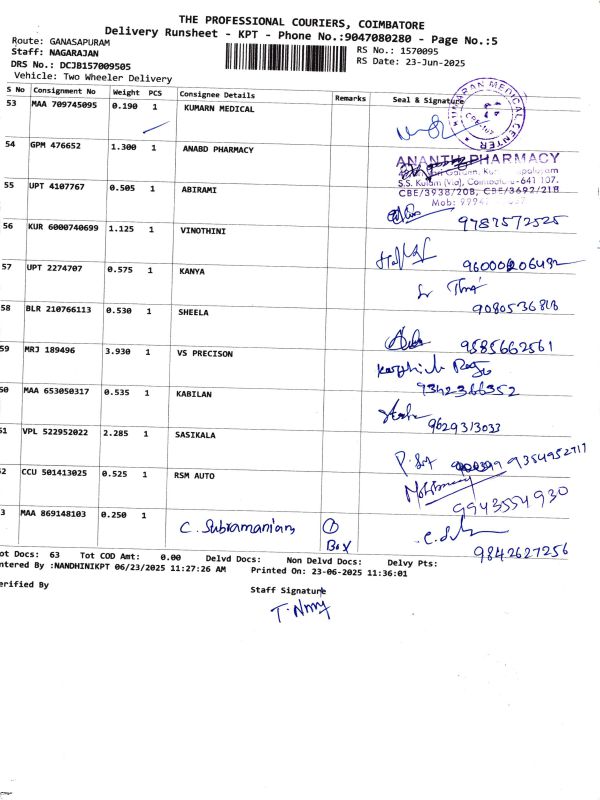 THE PROFESSIONAL COURIERS, COIMBATORE
Delivery Runsheet - KPT - Phone No.:9047080280 - Page No.:5
Route: GANASAPURAM
RS No.: 1570095
Staff: NAGARAJAN
RS Date: 23-Jun-2025
DRS No.: DCJB157009505
Vehicle: Two Wheeler Delivery
S No Consignment No Weight PCS Consignee Details Remarks Seal & Signature
53 MAA 709745095 0.190 1 KUMARN MEDICAL
MEDICAL CENTER
54 GPM 476652 1.300 1 ANABD PHARMACY
ANANTH PHARMACY
S.S. Kulam (Via), Coimbatore-641 107.
CBE/3938/20B, CBE/3692/21B
55 UPT 4107767 0.505 1 ABIRAMI
9787572525
56 KUR 6000740699 1.125 1 VINOTHINI
57 UPT 2274707 0.575 1 KANYA
58 BLR 210766113 0.530 1 SHEELA
9585662561
59 MRJ 189496 3.930 1 VS PRECISON
9342366352
60 MAA 653050317 0.535 1 KABILAN
9629313033
61 VPL 522952022 2.285 1 SASIKALA
62 CCU 501413025 0.525 1 RSM AUTO
9943554930
3 MAA 869148103 0.250 1 C. Subramaniam 1 Box
9842627256
ot Docs: 63 Tot COD Amt: 0.00 Delvd Docs: Non Delvd Docs: Delvy Pts:
ntered By :NANDHINIKPT 06/23/2025 11:27:26 AM Printed On: 23-06-2025 11:36:01
erified By
Staff Signature